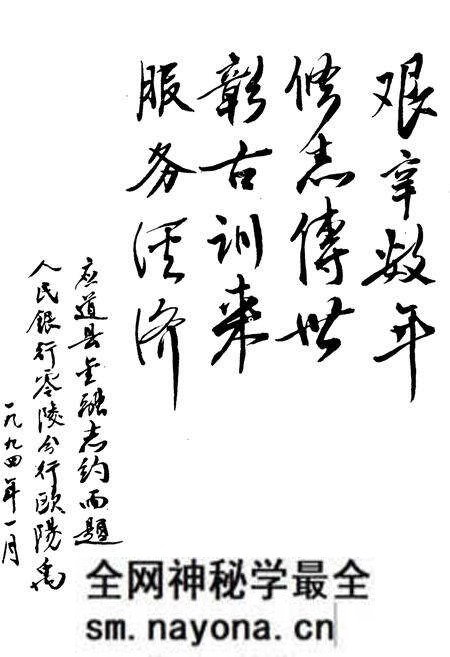 艰辛数年
修志傳世
彰古训来
服务经济
应道县金融志约而题
人民銀行零陵分行欧陽禹
一九九四年一月
全网神秘学最全
sm.nayona.cn